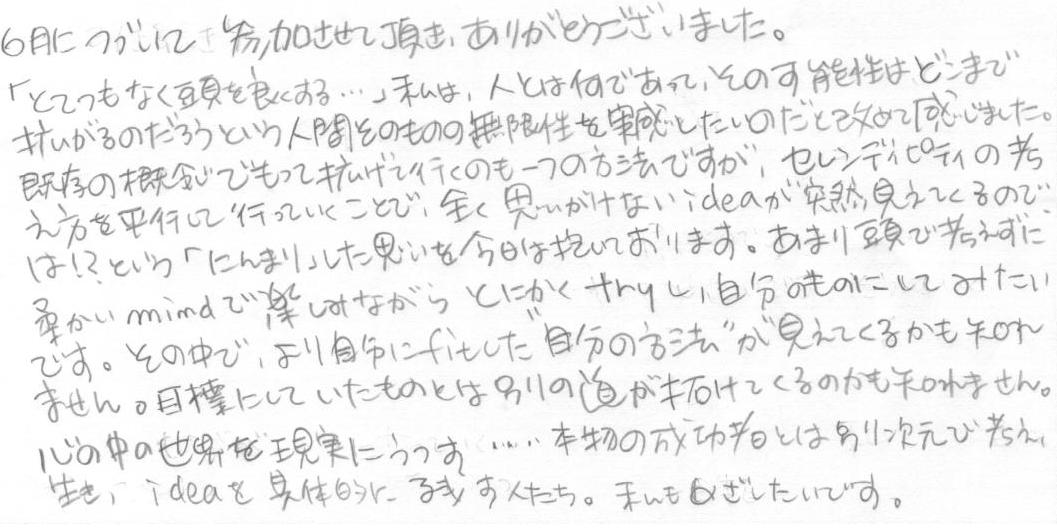 6月につづいて参加させて頂き、ありがとうございました。
「とてつもなく頭を良くする…」私は、人とは何であって、その可能性はどこまで
拡がるのだろうという人間そのものの無限性を実感したいのだと改めて感じました。
既存の概念でもって拡げて行くのも一つの方法ですが、セレンディピティの考
え方を平行して行っていくことで、全く思いがけないideaが突然見えてくるので
は!?という「にんまり」した思いを今日は抱いております。あまり頭で考えずに
柔かいmindで楽しみながらとにかくtryし、自分のものにしてみたい
です。その中で、より自分にfitした"自分の方法"が見えてくるかも知れ
ません。目標にしていたものとは別の道が拓けてくるのかも知れません。
心の中の世界を現実にうつす……本物の成功者とは別次元で考え、
生き、ideaを具体的に残す人たち。私もめざしたいです。